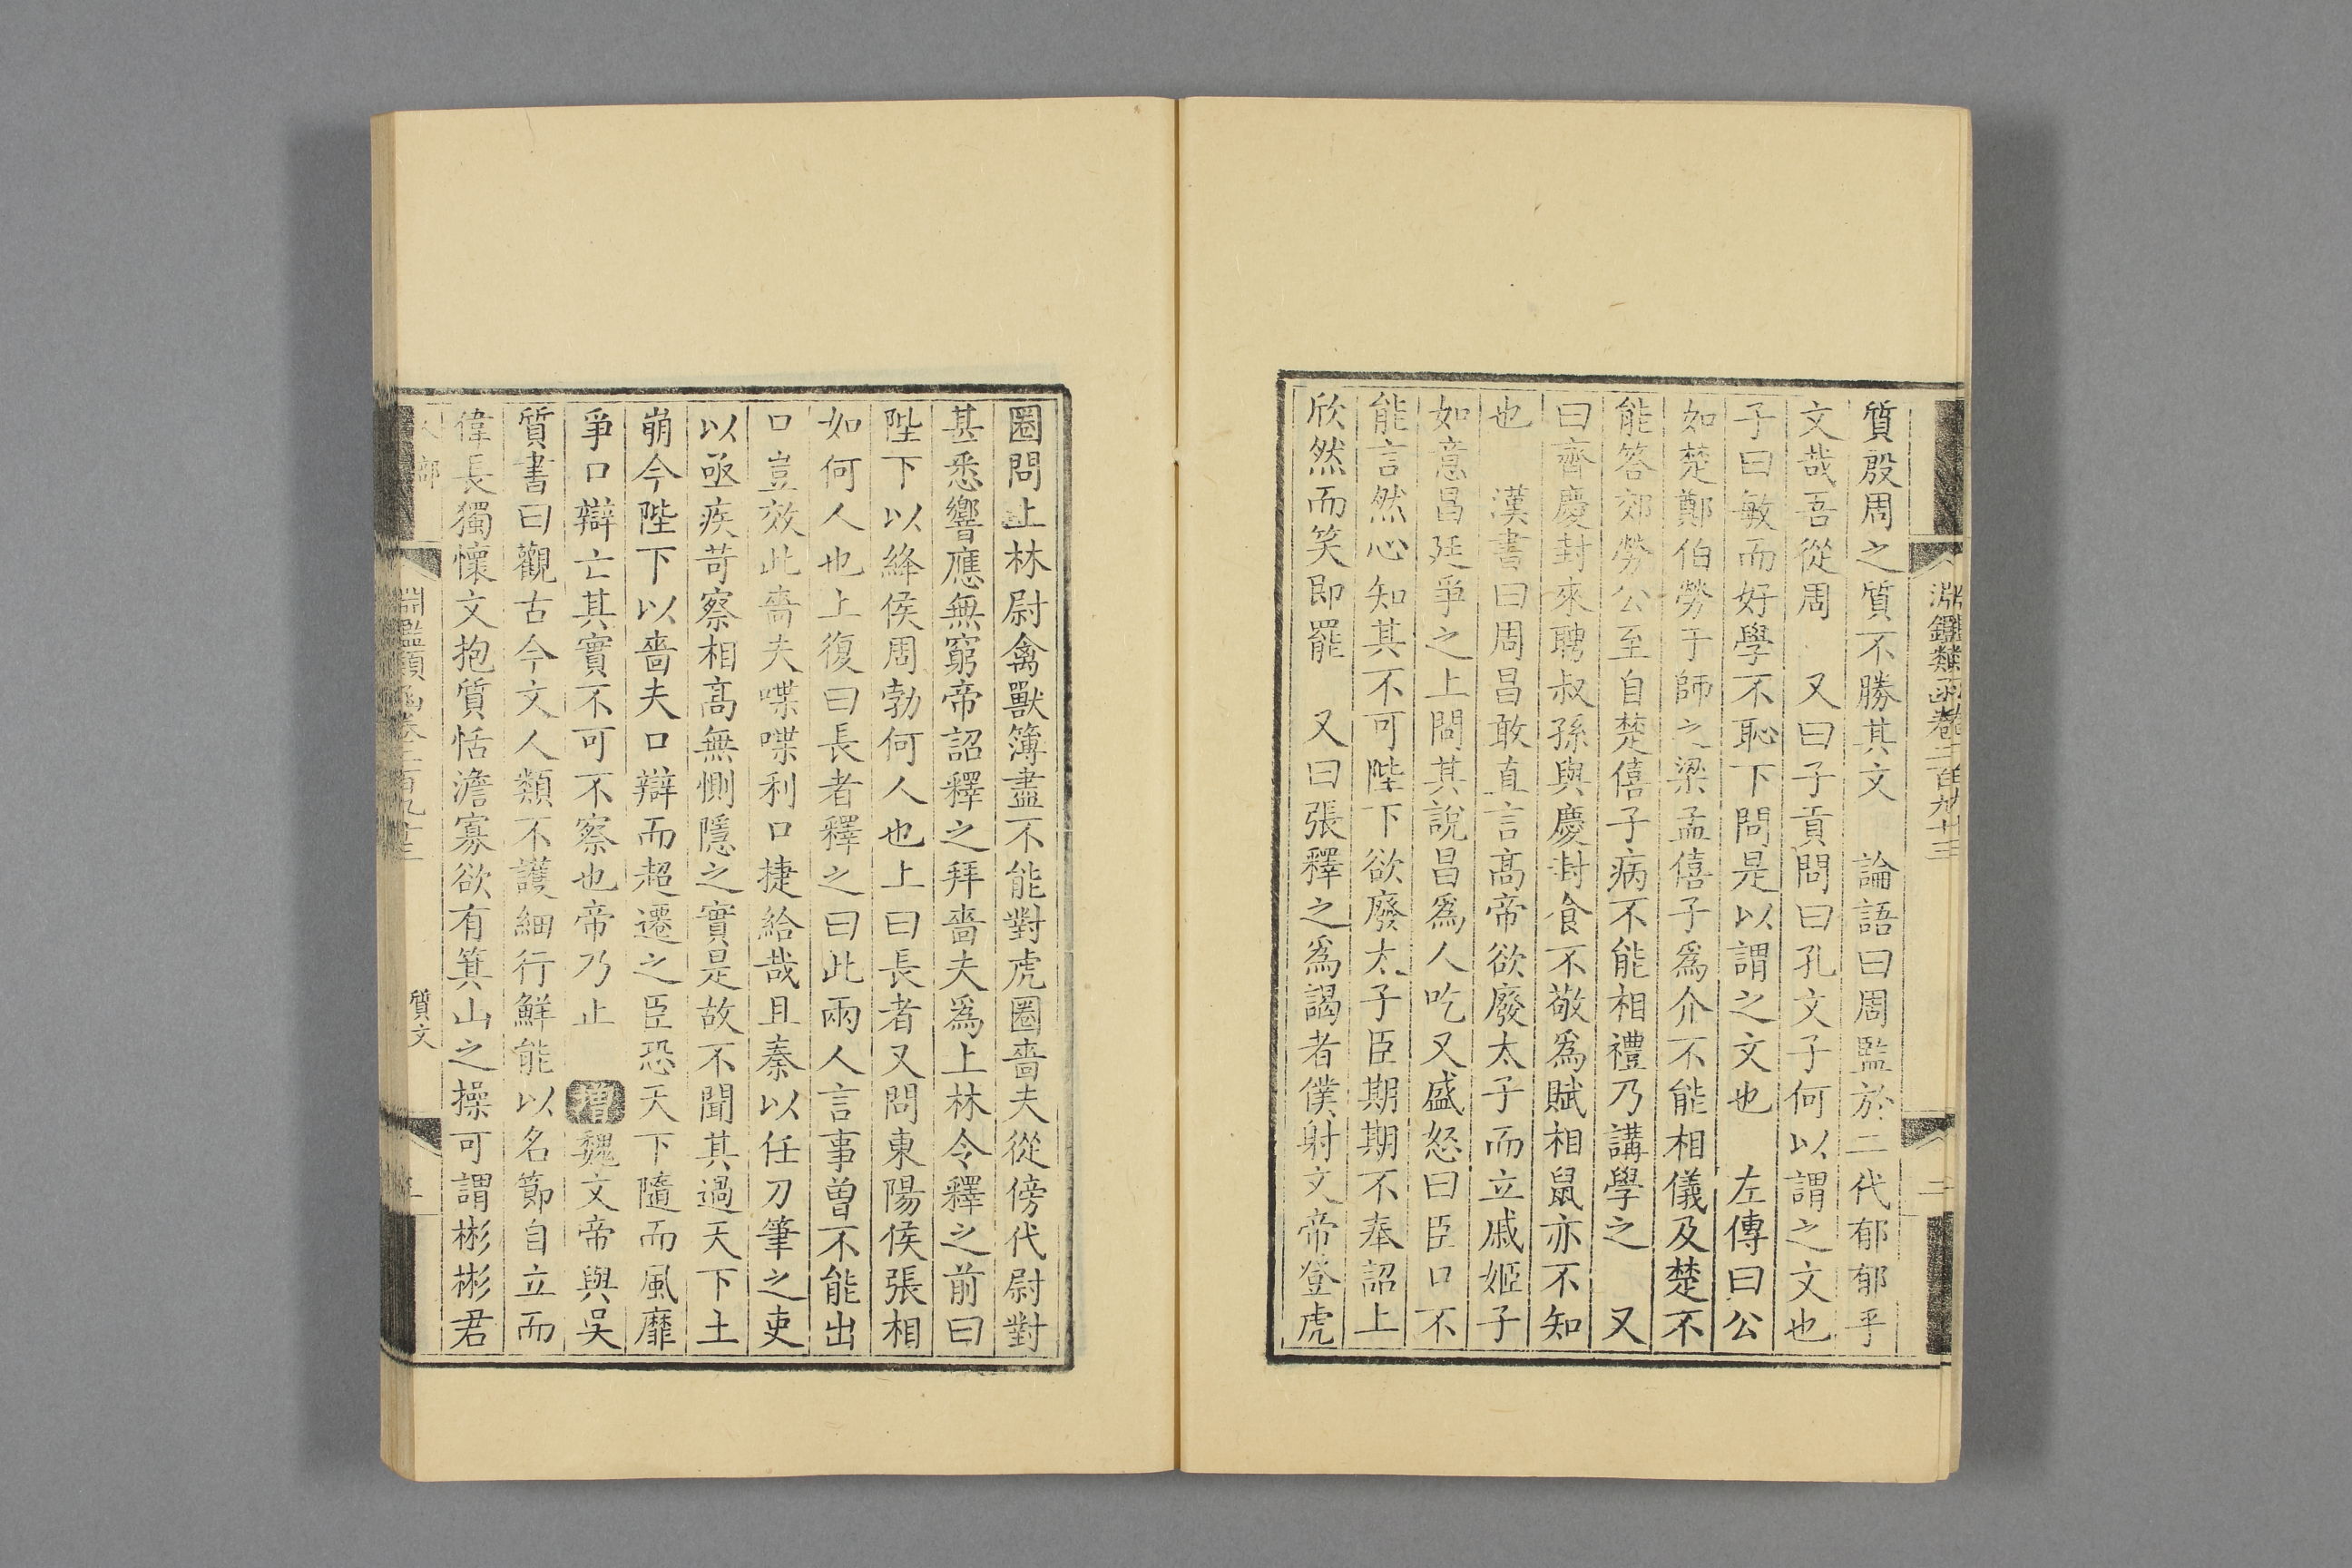 淵鑑類函卷二百九十三
二
質殷周之質不勝其文　論語曰周監於二代郁郁乎
文哉吾從周　又曰子貢問曰孔文子何以謂之文也
子曰敏而好學不恥下問是以謂之文也　左傳曰公
如楚鄭伯勞于師之梁孟僖子爲介不能相儀及楚不
能答郊勞公至自楚僖子病不能相禮乃講學之　又
曰齊慶封來聘叔孫與慶封食不敬爲賦相鼠亦不知
也　漢書曰周昌敢直言高帝欲廢太子而立戚姬子
如意昌廷爭之上問其說昌爲人吃又盛怒曰臣口不
能言然心知其不可陛下欲廢太子臣期期不奉詔上
欣然而笑即罷　又曰張釋之爲謁者僕射文帝登虎
圈問上林尉禽獸簿盡不能對虎圈嗇夫從傍代尉對
甚悉響應無窮帝詔釋之拜嗇夫爲上林令釋之前曰
陛下以絳侯周勃何人也上曰長者又問東陽侯張相
如何人也上復曰長者釋之曰此兩人言事曾不能出
口豈效此嗇夫喋喋利口捷給哉且秦以任刀筆之吏
以亟疾苛察相高無惻隱之實是故不聞其過天下土
崩今陛下以嗇夫口辯而超遷之臣恐天下隨而風靡
爭口辯亡其實不可不察也帝乃止　增魏文帝與吳
質書曰觀古今文人類不護細行鮮能以名節自立而
偉長獨懷文抱質恬澹寡欲有箕山之操可謂彬彬君
人部
淵鑑類函卷二百九十三
質文